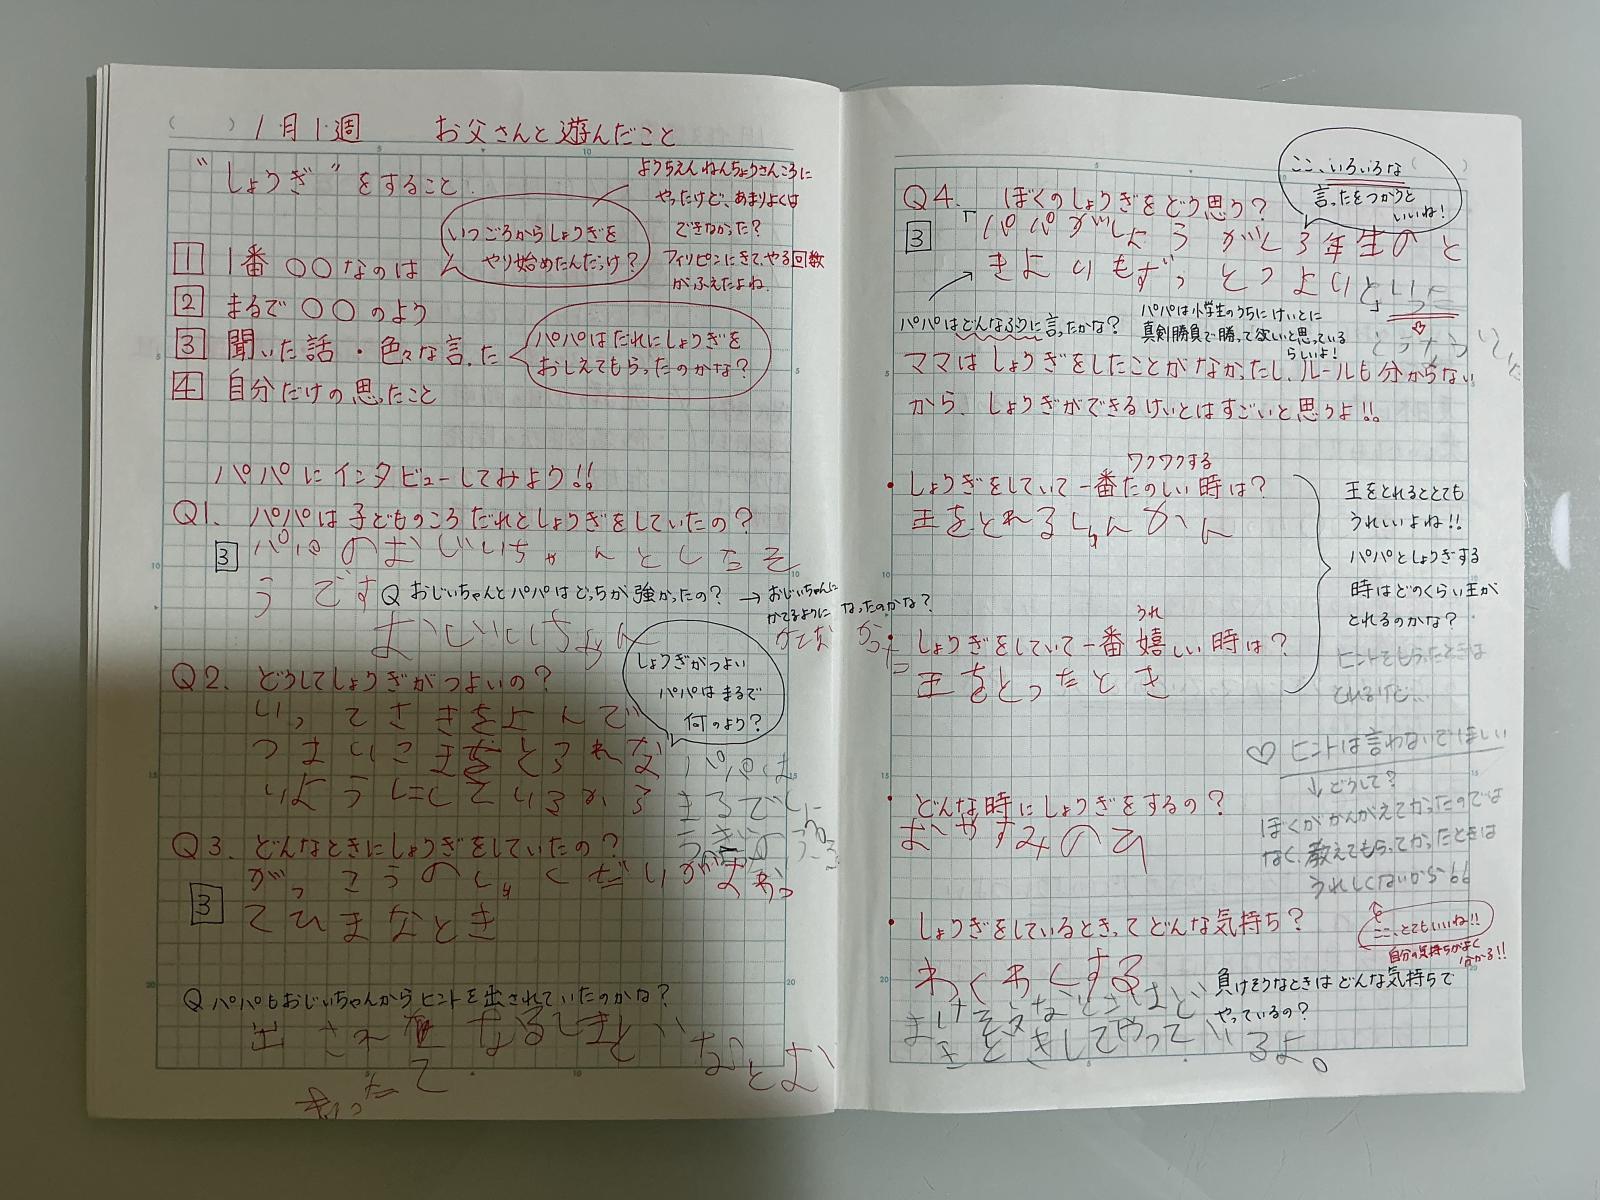 ( ) 1月1週 お父さんと遊んだこと
"しょうぎ"をすること.
ようちえんねんちょうさんころに
やったけど、あまりよくは
できなかった?
フィリピンにきて、やる回数
がふえたよね.
いつごろからしょうぎを
やり始めたんだっけ?
1 1番○○なのは
2 まるで○○のよう
3 聞いた話・色々な言った
4 自分だけの思ったこと
パパはだれにしょうぎを
おしえてもらったのかな?
パパにインタビューしてみよう!!
Q1. パパは子どものころだれとしょうぎをしていたの?
3 パパのおじいちゃんとしたそ
うです
Q おじいちゃんとパパはどっちが強かったの? → おじいちゃんに
かてるようになったのかな?
おじいちゃん
かてなかった
Q2. どうしてしょうぎがつよいの?
いってさきをよんで
つまりこまをとられな
いようにしているから
しょうぎがつよい
パパはまるで
何のよう?
パパは
まるで
Q3. どんなときにしょうぎをしていたの?
3 がっこうのしゅくだいがおわっ
てひまなとき
Q パパもおじいちゃんからヒントを出されていたのかな?
Q4. ぼくのしょうぎをどう思う?
ここ、いろいろな
言ったをつかうと
いいね!
3 「パパがしょうがく3年生のと
きよりもずっとつよい」と
パパはどんなふうに言ったかな?
パパは小学生のうちにけいとに
真剣勝負で勝って欲しいと思っている
らしいよ!
ママはしょうぎをしたことがなかったし、ルールも分からない
から、しょうぎができるけいとはすごいと思うよ!!
ワクワクする
・しょうぎをしていて一番たのしい時は?
王をとれるしゅんかん
うれ
・しょうぎをしていて一番嬉しい時は?
王をとったとき
王をとれるととても
うれしいよね!!
パパとしょうぎする
時はどのくらい王が
とれるのかな?
ヒントをもらったときは
とれるけど…
♡ヒントは言わないでほしい
↓どうして?
ぼくがかんがえてかったのでは
なく、教えてもらってかったときは
うれしくないから。
ここ、とてもいいね!!
自分の気持ちがよく
分かる!!
・どんな時にしょうぎをするの?
おやすみのひ
・しょうぎをしているときってどんな気持ち?
わくわくする
負けそうなときはどんな気持ちで
やっているの?
まけそうなときはど
きどきしてやっているよ。